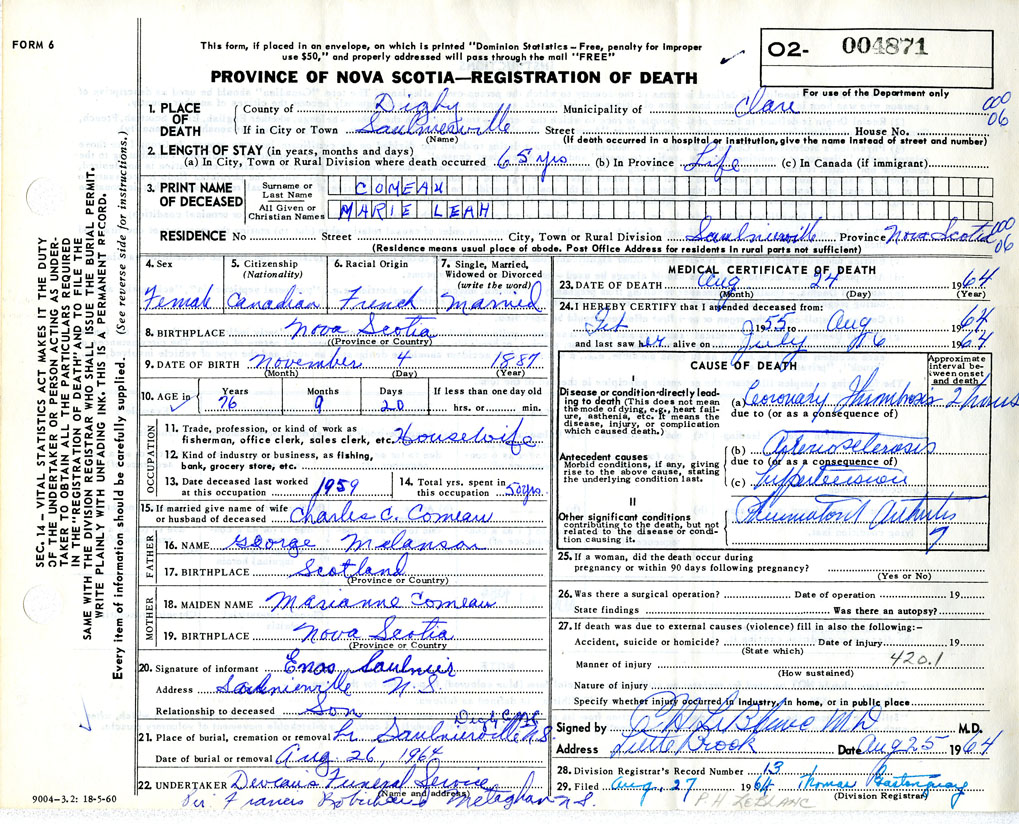 FORM 6
This form, if placed in an envelope, on which is printed "Dominion Statistics – Free, penalty for improper
use $50," and properly addressed will pass through the mail "FREE"
O2- 004871
For use of the Department only
PROVINCE OF NOVA SCOTIA—REGISTRATION OF DEATH
SEC. 14 – VITAL STATISTICS ACT MAKES IT THE DUTY
OF THE UNDERTAKER OR PERSON ACTING AS UNDER-
TAKER TO OBTAIN ALL THE PARTICULARS REQUIRED
IN THE "REGISTRATION OF DEATH" AND TO FILE THE
SAME WITH THE DIVISION REGISTRAR WHO SHALL ISSUE THE BURIAL PERMIT.
WRITE PLAINLY WITH UNFADING INK. THIS IS A PERMANENT RECORD.
Every item of information should be carefully supplied. (See reverse side for instructions.)
1. PLACE OF DEATH
County of Digby Municipality of Clare 000 06
If in City or Town Saulnierville Street House No.
(Name) (If death occurred in a hospital or institution, give the name instead of street and number)
2. LENGTH OF STAY (in years, months and days)
(a) In City, Town or Rural Division where death occurred 65 yrs (b) In Province Life (c) In Canada (if immigrant)
3. PRINT NAME OF DECEASED
Surname or Last Name COMEAU
All Given or Christian Names MARIE LEAH
RESIDENCE No Street City, Town or Rural Division Saulnierville Province Nova Scotia 000 06
(Residence means usual place of abode. Post Office Address for residents in rural parts not sufficient)
4. Sex Female
5. Citizenship (Nationality) Canadian
6. Racial Origin French
7. Single, Married, Widowed or Divorced (write the word) Married
8. BIRTHPLACE Nova Scotia
(Province or Country)
9. DATE OF BIRTH November 4 1887
(Month) (Day) (Year)
10. AGE in Years 76 Months 9 Days 20 If less than one day old hrs. or min.
OCCUPATION
11. Trade, profession, or kind of work as
fisherman, office clerk, sales clerk, etc. Housewife
12. Kind of industry or business, as fishing,
bank, grocery store, etc.
13. Date deceased last worked at this occupation 1959
14. Total yrs. spent in this occupation 50 yrs.
15. If married give name of wife
or husband of deceased Charles C. Comeau
FATHER
16. NAME George Melanson
17. BIRTHPLACE Scotland
(Province or Country)
MOTHER
18. MAIDEN NAME Marianne Comeau
19. BIRTHPLACE Nova Scotia
(Province or Country)
20. Signature of informant Enos Saulnier
Address Saulnierville N.S.
Relationship to deceased Son
21. Place of burial, cremation or removal Saulnierville N.S.
Date of burial or removal Aug. 26, 1964
22. UNDERTAKER Funeral Service
(Name and address)
Francis Robichaud Meteghan N.S.
9004–3.2: 18-5-60
MEDICAL CERTIFICATE OF DEATH
23. DATE OF DEATH Aug 24 1964
(Month) (Day) (Year)
24. I HEREBY CERTIFY that I attended deceased from:
55 to Aug 1964
and last saw her alive on July 1964
CAUSE OF DEATH
Approximate interval between onset and death
I
Disease or condition directly leading to death (This does not mean the mode of dying, e.g., heart failure, asthenia, etc. It means the disease, injury, or complication which caused death.)
(a) Coronary Thrombosis 2 hours
due to (or as a consequence of)
Antecedent causes
Morbid conditions, if any, giving rise to the above cause, stating the underlying condition last.
(b) Arteriosclerosis
due to (or as a consequence of)
(c) hypertension
II
Other significant conditions
contributing to the death, but not related to the disease or condition causing it.
Rheumatoid Arthritis
25. If a woman, did the death occur during
pregnancy or within 90 days following pregnancy?
(Yes or No)
26. Was there a surgical operation? Date of operation 19
State findings Was there an autopsy?
27. If death was due to external causes (violence) fill in also the following:–
Accident, suicide or homicide? Date of injury 19
(State which)
420.1
Manner of injury
(How sustained)
Nature of injury
Specify whether injury occurred in industry, in home, or in public place
Signed by P H LeBlanc MD M.D.
Address Little Brook Date Aug 25 1964
28. Division Registrar's Record Number 13
29. Filed Aug. 27 1964 Thomas
(Division Registrar)
P.H LEBLANC